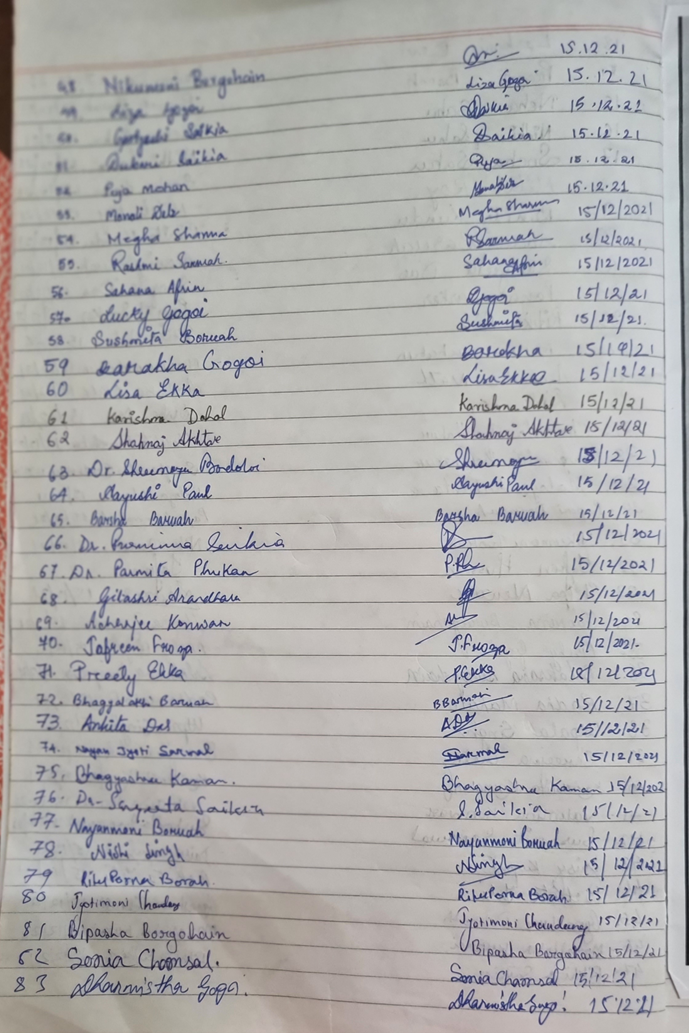 15.12.21
48 Nikumoni Borgohain Liza Gogoi 15.12.21
49 Liza Gogoi 15.12.21
50. Saikia Saikia 15.12.21
51 Saikia Puja 15.12.21
52 Puja Mohan 15.12.21
53. Monali Deb Megha Sharma 15/12/2021
54. Megha Sharma 15/12/2021
55. Rashmi Sarmah. Sahana Afrin 15/12/2021
56. Sahana Afrin Gogoi 15/12/21
57. Lucky Gogoi Sushmita 15/12/21.
58 Sushmita Boruah
59 Gogoi 15/12/21
60 Lisa Ekka Lisa Ekka 15/12/21
61 Karishma Dahal Karishma Dahal 15/12/21
62 Shahnaj Akhtar Shahnaj Akhtar 15/12/21
63. Dr. Bordoloi 15/12/21
64. Aayushi Paul Aayushi Paul 15/12/21
65. Barsha Baruah Barsha Baruah 15/12/21
66. Dr. Saikia 15/12/2021
67. Dr. Parmita Phukan 15/12/2021
68. Gitashri 15/12/2021
69. Konwar 15/12/2021
70. Jafreen Froga. J. Froga 15/12/2021
71. Preety Ekka P. Ekka 15/12/2021
72. Baruah 15/12/21
73. Ankita Das 15/12/21
74. Nayan Jyoti Sarmah Sarmah 15/12/2021
75. Bhagyashree Kaman. Bhagyashree Kaman 15/12/202
76. Dr. Sangeeta Saikia S. Saikia 15/12/21
77. Nayanmoni Boruah Nayanmoni Boruah 15/12/21
78. Nishi Singh NSingh 15/12/2021
79 RituPorna Borah. RituPorna Borah 15/12/21
80 Jyotimoni Chaudhury Jyotimoni Chaudhury 15/12/21
81 Bipasha Borgohain Bipasha Borgohain 15/12/21
82 Sonia Chamsal. Sonia Chamsal 15/12/21
83 Dharmistha Gogoi. Dharmistha Gogoi 15.12.21